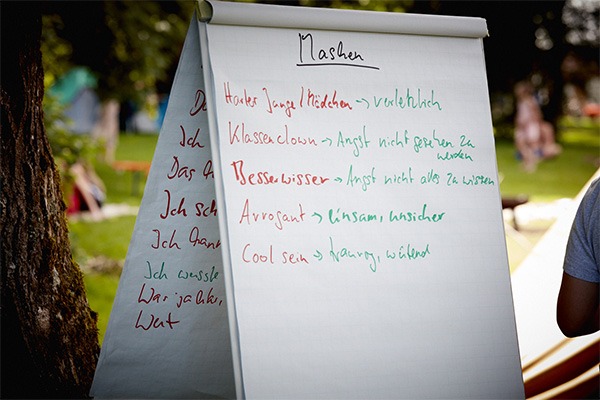 Masken
Harter Junge/Mädchen → verletzlich
Klassenclown → Angst nicht gesehen zu
werden
Besserwisser → Angst nicht alles zu wissen
Arrogant → einsam, unsicher
Cool sein → traurig, wütend
Ich
Das
Ich
Ich
Ich wusste
War
Wert